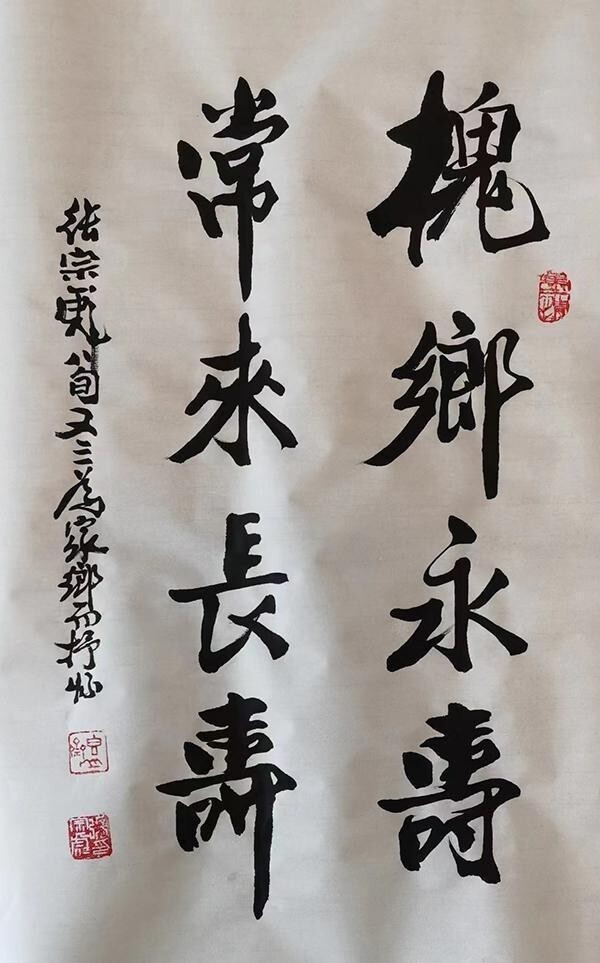 槐鄉永壽
常來長壽
張宗彪八旬又三為家鄉而抒懷